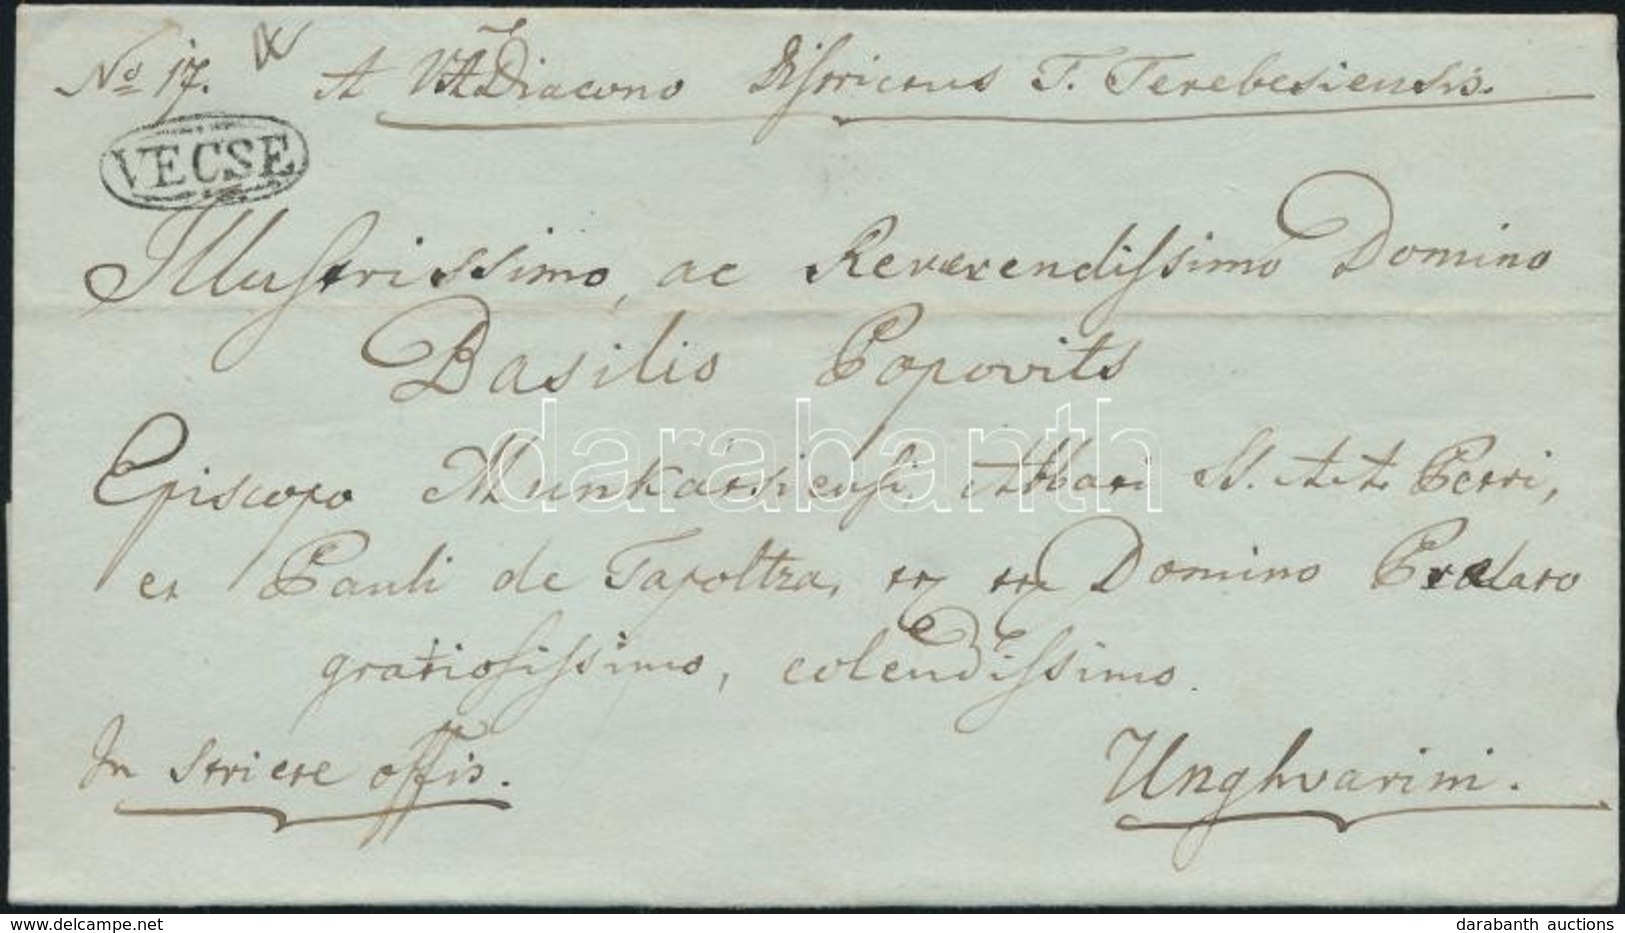 No 17. A V. A Diacono Districtus T. Terebesiensis.
VECSE
Illustrissimo, ac Reverendissimo Domino
Basilio Popovits
Episcopo Munkácsiensi, Abbati SS. A. A. Petri,
et Pauli de Tapoltza, Domino Praelato
gratiosissimo, colendissimo.
In stricte offis.
Unghvarini.
darabanth
www.delcampe.net
darabanth auctions